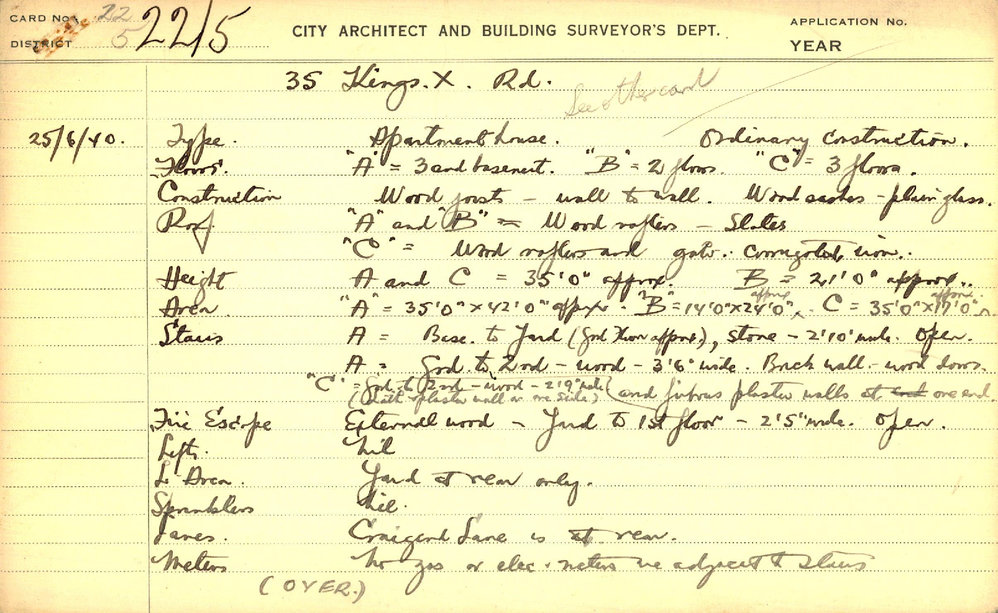 CARD No. 22
DISTRICT 5
22/5
CITY ARCHITECT AND BUILDING SURVEYOR'S DEPT.
APPLICATION No.
YEAR
35 Kings. X. Rd.
See other card
25/6/40. Type. Apartment house. Ordinary Construction.
Floors. "A" = 3 and basement. "B" = 2 floors. "C" = 3 floors.
Construction Wood joists - wall to wall. Wood sashes - plain glass.
Roof "A" and "B" = Wood rafters - Slates
"C" = Wood rafters and galv. corrugated iron.
Height A and C = 35'0" approx. B = 21'0" approx.
Area "A" = 35'0" x 42'0" approx. "B" = 14'0" x 24'0" approx. C = 35'0" x 17'0" approx.
Stairs A = Base. to Yard (Grd floor approx), stone - 2'10" wide. Open.
A = Grd. to 2nd - wood - 3'6" wide. Brick wall - wood doors.
"C" = Grd. to 2nd - wood - 2'9" wide and fibrous plaster walls at one end.
(Lath & plaster wall on one side)
Fire Escape External wood - Yard to 1st floor - 2'5" wide. Open.
Lifts. Nil
L. Area. Yard at rear only.
Sprinklers Nil.
Lanes. Craigend Lane is at rear.
Meters No gas or elec. meters are adjacent to stairs
(OVER.)